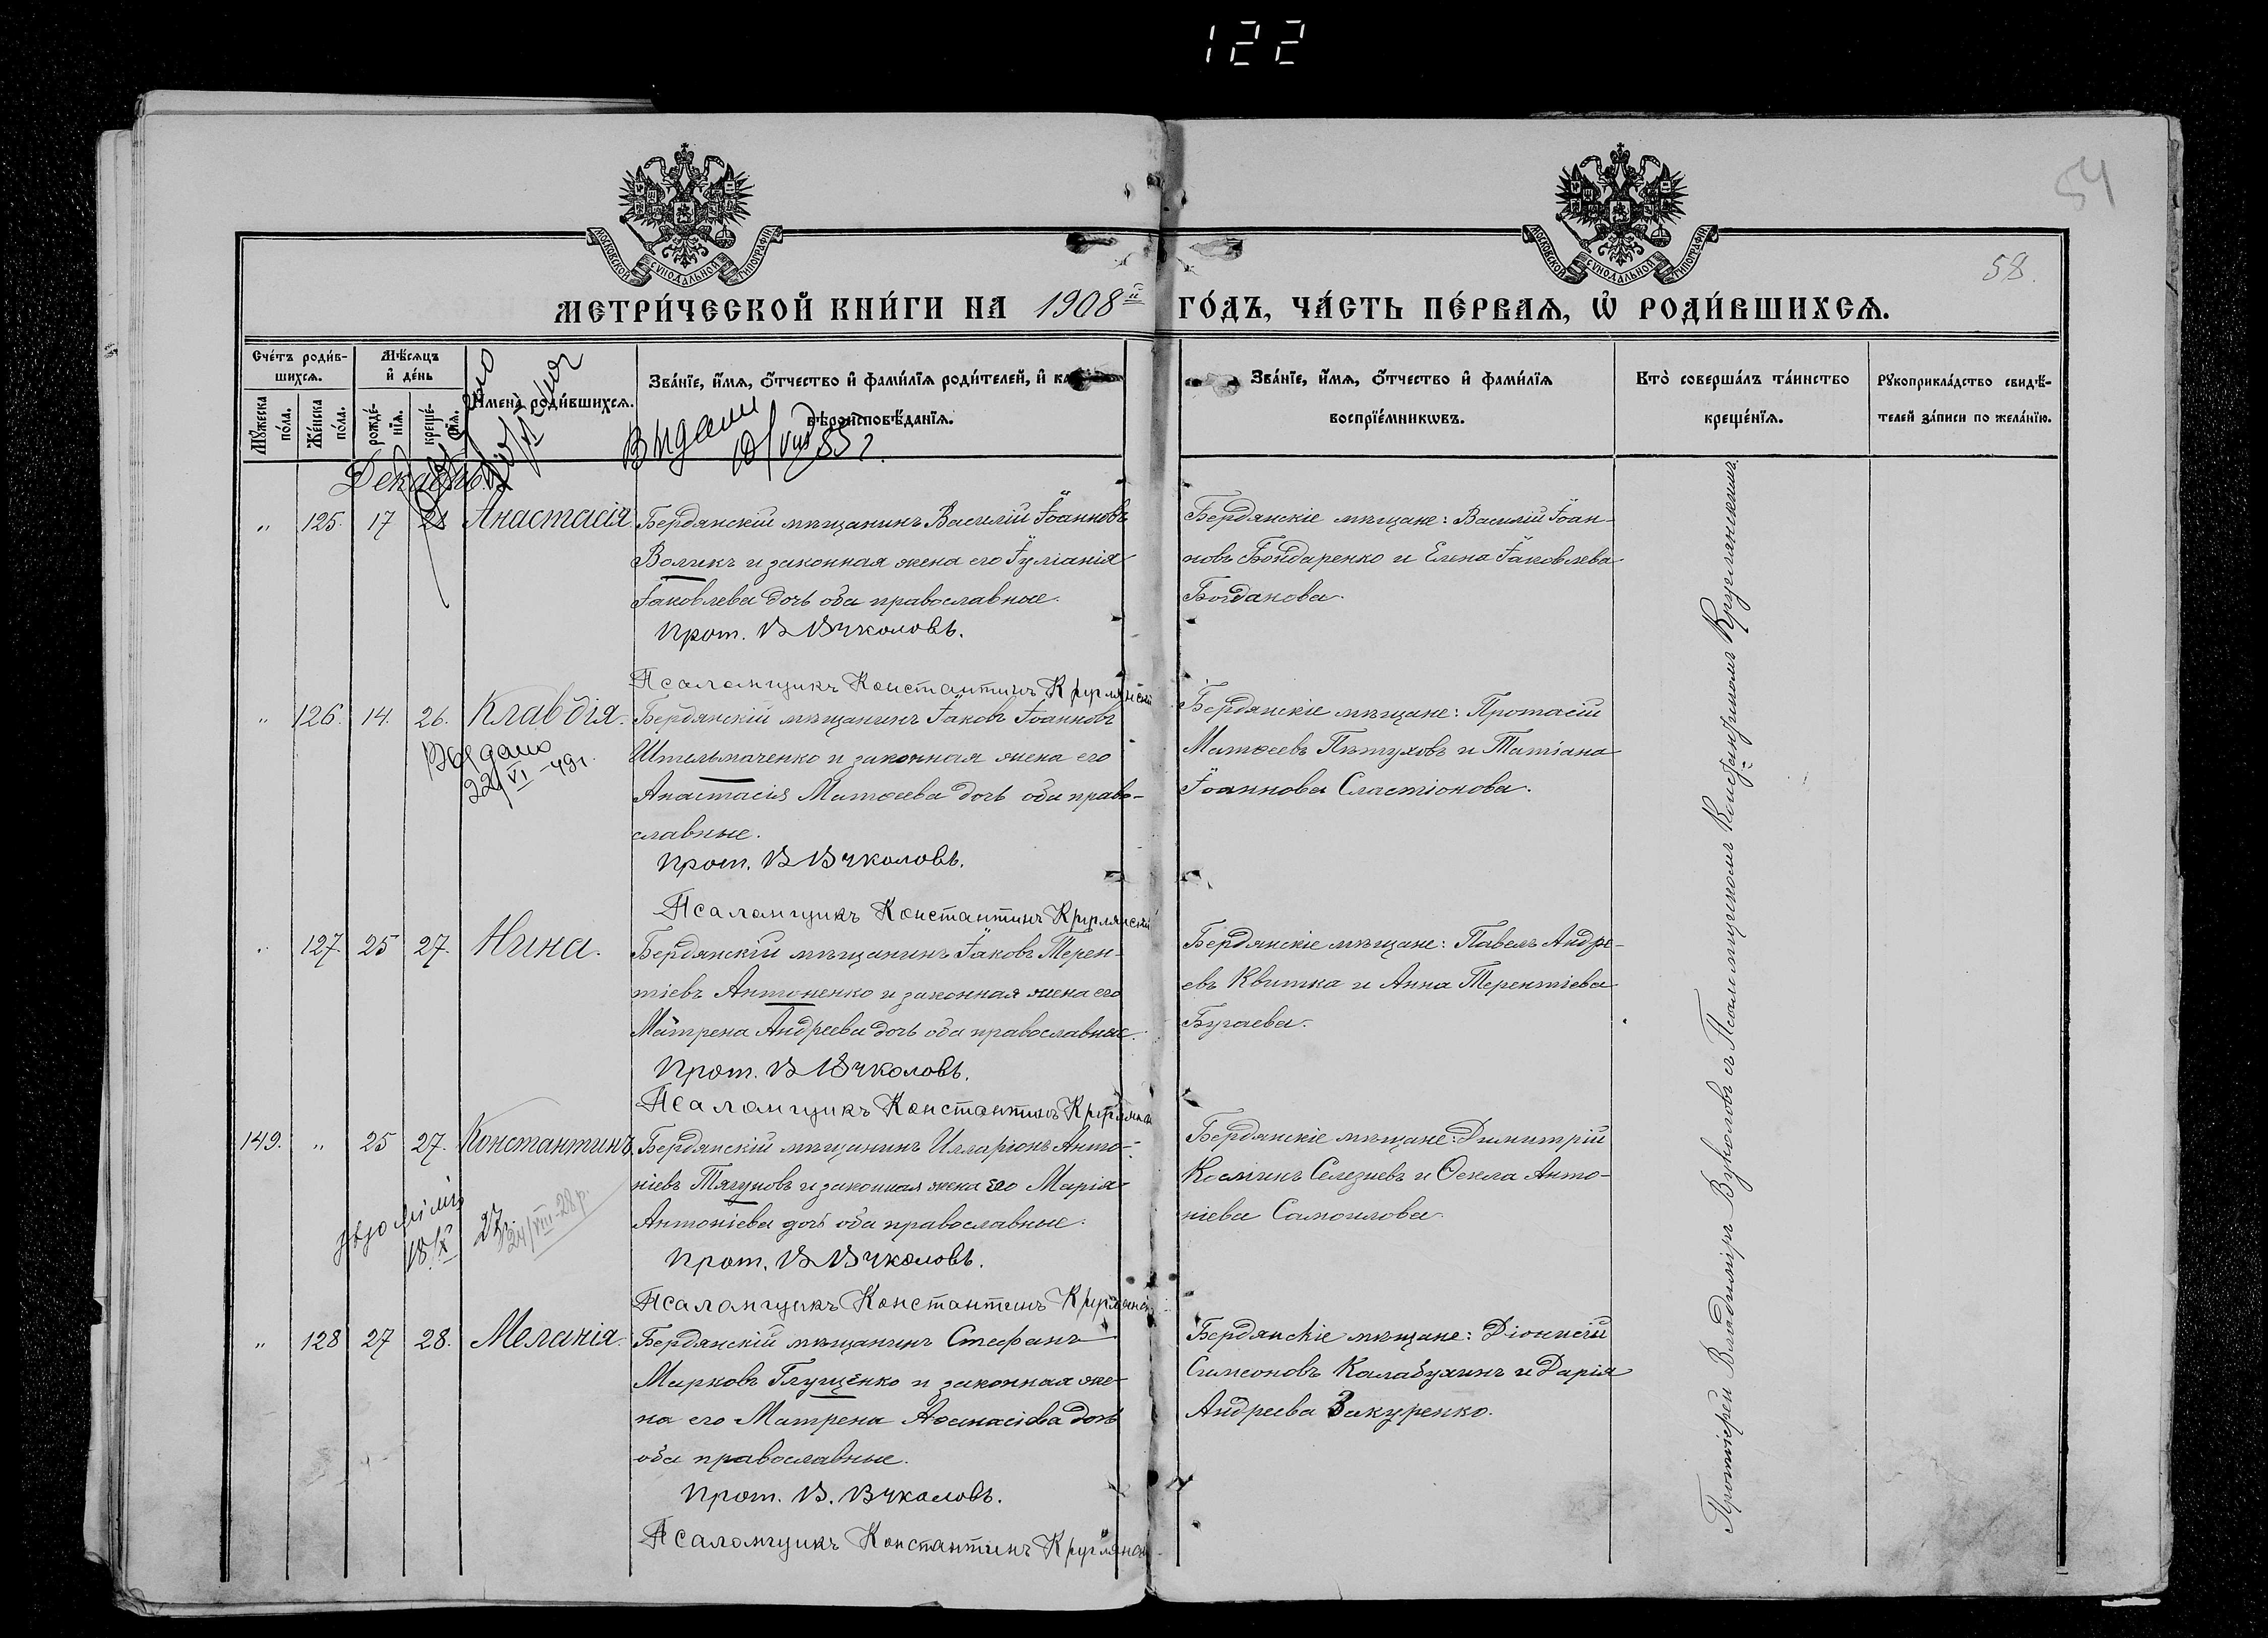 122
54
58.
МОСКОВСКОЙ СѴНОДАЛЬНОЙ ТИПОГРАФІИ
МОСКОВСКОЙ СѴНОДАЛЬНОЙ ТИПОГРАФІИ
МЕТРИ́ЧЕСКОЙ КНИ́ГИ НА 1908й ГО́ДЪ, ЧА́СТЬ ПЕ́РВАѦ, Ѡ҆ РОДИ́ВШИХСѦ.
Счéтъ роди́в-
шихсѧ.
Мѣ́сѧцъ
и҆ де́нь
Мꙋ́жеска по́ла.
Же́нска по́ла.
рожде́-
нїѧ.
креще́-
нїѧ.
И҆мена̀ роди́вшихсѧ.
Зва́нїе, и҆́мѧ, ѻ҆́тчество и҆ фами́лїѧ роди́телей, и҆
вѣроисповѣ́данїѧ.
Зва́нїе, и҆́мѧ, ѻ҆́тчество и҆ фами́лїѧ
воспрїе́мникѡвъ.
Кто̀ соверша́лъ та́инство
креще́нїѧ.
Рꙋкоприкла́дство свидѣ́-
телей за́писи по жела́нїю.
Видали
10/VIII 85 г.
Декабрь
" 125. 17 28 Анастасія
Бердянскій мѣщанинъ Василій Іоанновъ
Воликъ и законная жена его Іуліанія
Іаковлева дочь оба православные.
Прот. В Вуколовъ.
Псаломщикъ Константинъ Круглянскій
Бердянскіе мѣщане: Василій Іоан-
новъ Бондаренко и Елена Іаковлева
Богданова.
" 126. 14. 26. Клавдія.
Выдано
22/VI -49г.
Бердянскій мѣщанинъ Іаковъ Іоанновъ
Штельмаченко и законная жена его
Анастасія Матѳеева дочь оба право-
славные.
Прот. В Вуколовъ.
Псаломщикъ Константинъ Круглянскій
Бердянскіе мѣщане: Протасій
Матѳеевъ Пѣтуховъ и Татіана
Іоаннова Сластіонова.
" 127. 25 27. Нина.
Бердянскій мѣщанинъ Іаковъ Терен-
тіевъ Антоненко и законная жена его
Матрена Андреева дочь оба православные.
Прот. В Вуколовъ.
Псаломщикъ Константинъ Круглянск
Бердянскіе мѣщане: Павелъ Андре-
евъ Квитка и Анна Терентіева
Бугаева.
149. " 25 27. Константинъ.
18/X 27
24/VIII-28р.
Бердянскій мѣщанинъ Илларіонъ Анто-
ніевъ Тягуновъ и законная жена его Марія
Антоніева дочь оба православные.
Прот. В Вуколовъ.
Псаломщикъ Константинъ Круглянск
Бердянскіе мѣщане: Димитрій
Косминъ Селезневъ и Ѳекла Анто-
ніева Самоилова.
" 128 27 28. Меланія.
Бердянскій мѣщанинъ Стефанъ
Марковъ Глущенко и законная же-
на его Матрена Аѳанасіева дочь
оба православные.
Прот. В. Вуколовъ.
Псаломщикъ Константинъ Круглянск
Бердянскіе мѣщане: Діонисій
Симеоновъ Калабухинъ и Дарія
Андреева Закуренко.
Протоіерей Владиміръ Вуколовъ съ Псаломщикомъ Константиномъ Круглянскимъ.